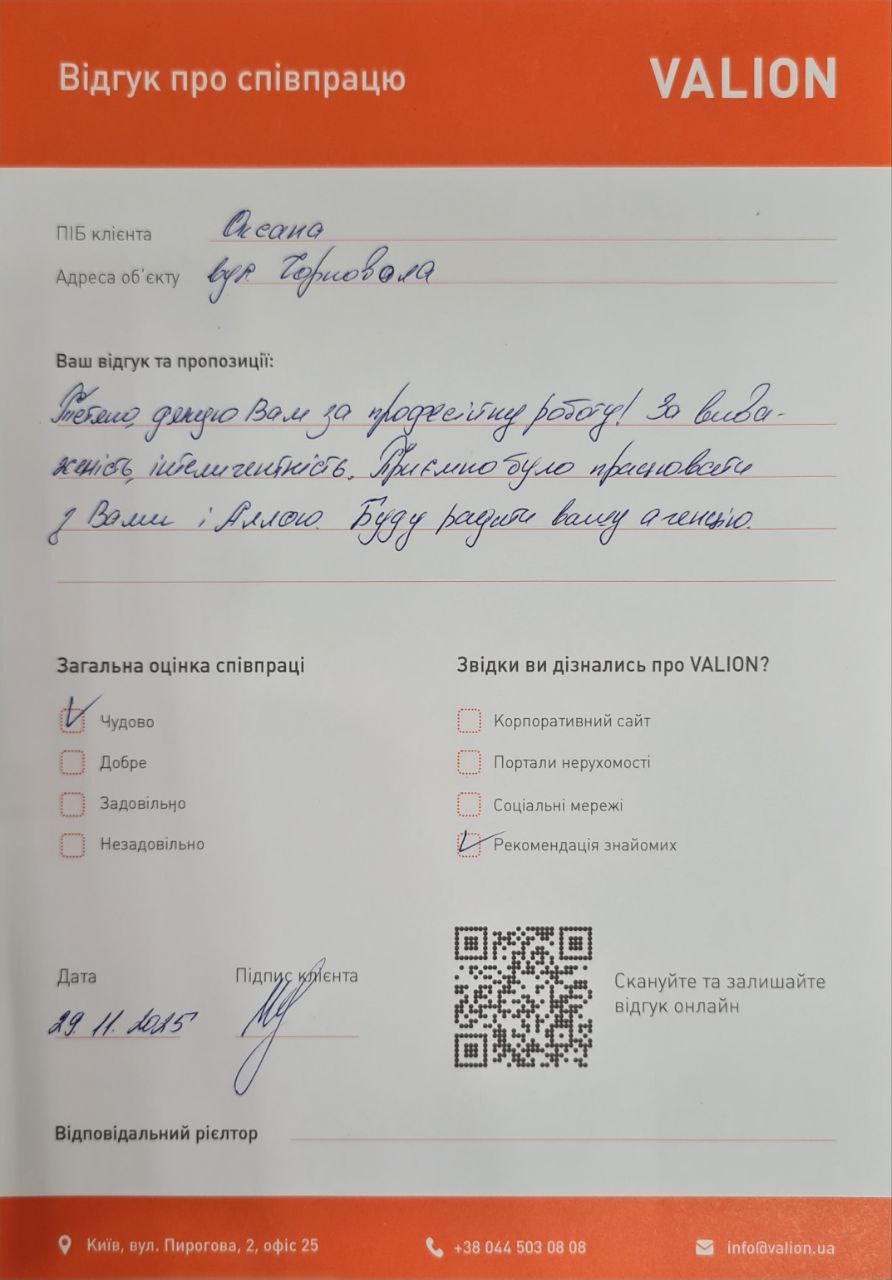 Відгук про співпрацю
VALION
ПІБ клієнта Оксана
Адреса об'єкту вул. Чорновола
Ваш відгук та пропозиції:
Тетяно, дякую Вам за професійну роботу! За вива-
женість, інтелигентність. Приємно було працювати
з Вами і Аллою. Буду радити вашу агенцію.
Загальна оцінка співпраці
Чудово
Добре
Задовільно
Незадовільно
Звідки ви дізнались про VALION?
Корпоративний сайт
Портали нерухомості
Соціальні мережі
Рекомендація знайомих
Дата
29.11.2025
Підпис клієнта
Скануйте та залишайте
відгук онлайн
Відповідальний рієлтор
Київ, вул. Пирогова, 2, офіс 25
+38 044 503 08 08
info@valion.ua